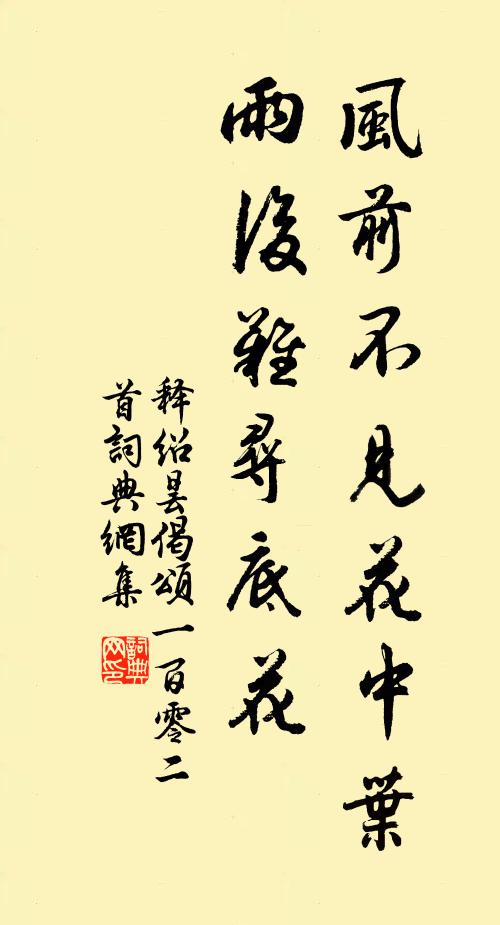 風前不見花中葉
雨後難尋底花
釋紹曇偈頌一百零二
首詞典網集
詞典
网印